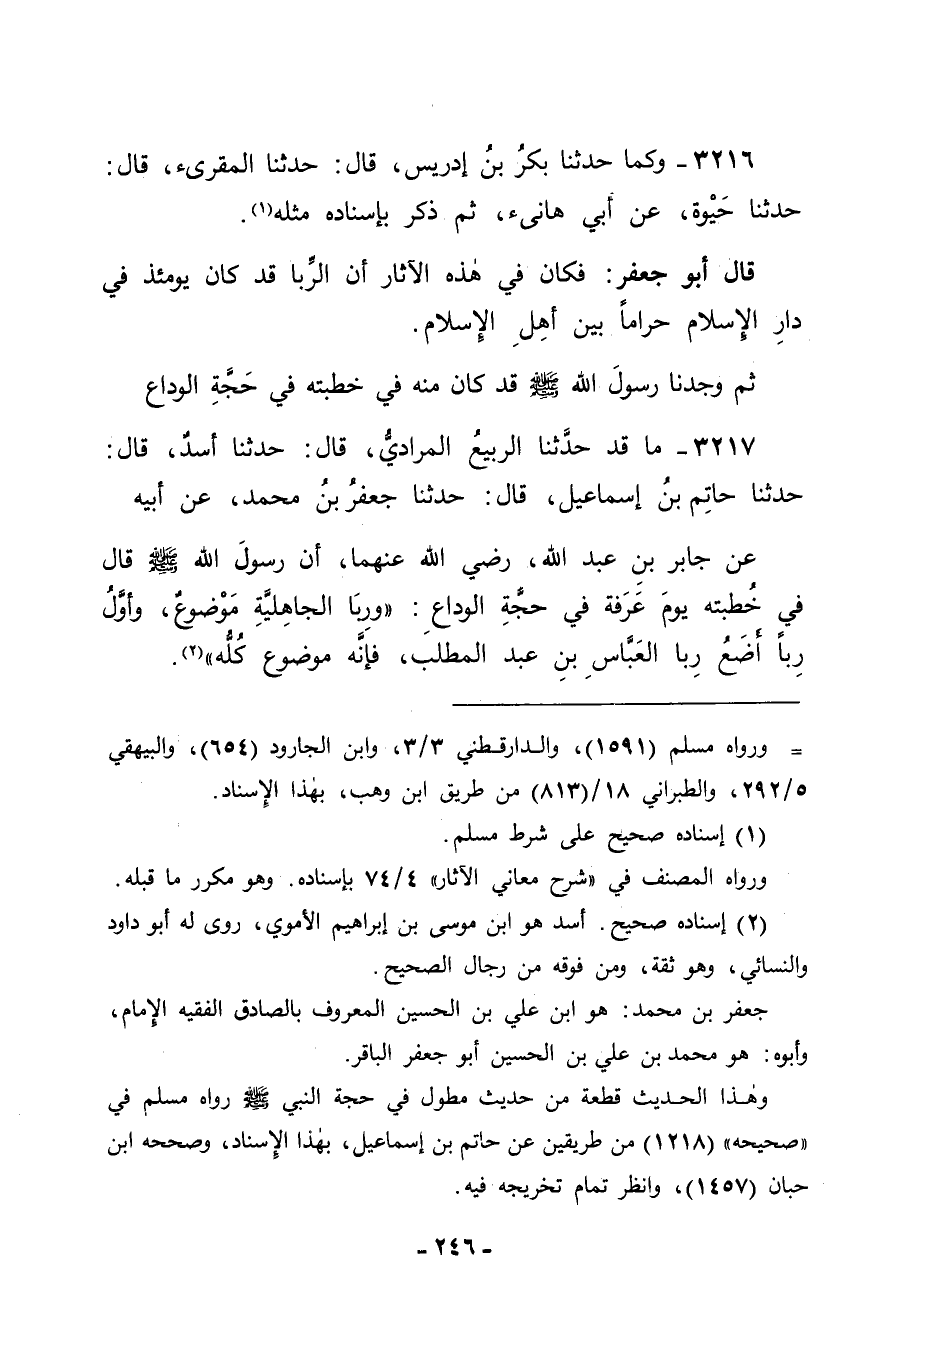 ٣٢١٦ ـ وكما حدثنا بكرُ بنُ إدريس، قال: حدثنا المقرىء، قال:
حدثنا حَيْوة، عن أبي هانىء، ثم ذكر بإسناده مثله(١).
قال أبو جعفر: فكان في هٰذه الآثار أن الرِّبا قد كان يومئذ في
دارِ الإِسلام حراماً بين أهلِ الإِسلام.
ثم وجدنا رسولَ الله ﷺ قد كان منه في خطبته في حَجَّةِ الوداع
٣٢١٧ ـ ما قد حدَّثنا الربيعُ المراديُّ، قال: حدثنا أسدٌ، قال:
حدثنا حاتِم بنُ إسماعيل، قال: حدثنا جعفرُ بنُ محمد، عن أبيه
عن جابر بن عبد الله، رضي الله عنهما، أن رسولَ الله ﷺ قال
في خُطبته يومَ عَرَفة في حجَّةِ الوداع: «ورِبَا الجاهليَّةِ مَوْضوعٌ، وأوَّلُ
رِباً أَضَعُ رِبا العَبَّاسِ بنِ عبد المطلب، فإنَّه موضوع كُلُّه»(٢).
= ورواه مسلم (١٥٩١)، والدارقطني ٣/٣، وابن الجارود (٦٥٤)، والبيهقي
٢٩٢/٥، والطبراني ١٨/(٨١٣) من طريق ابن وهب، بهٰذا الإِسناد.
(١) إسناده صحيح على شرط مسلم.
ورواه المصنف في «شرح معاني الآثار» ٧٤/٤ بإسناده. وهو مكرر ما قبله.
(٢) إسناده صحيح. أسد هو ابن موسى بن إبراهيم الأموي، روى له أبو داود
والنسائي، وهو ثقة، ومن فوقه من رجال الصحيح.
جعفر بن محمد: هو ابن علي بن الحسين المعروف بالصادق الفقيه الإِمام،
وأبوه: هو محمد بن علي بن الحسين أبو جعفر الباقر.
وهٰذا الحديث قطعة من حديث مطول في حجة النبي ﷺ رواه مسلم في
«صحيحه» (١٢١٨) من طريقين عن حاتم بن إسماعيل، بهٰذا الإِسناد، وصححه ابن
حبان (١٤٥٧)، وانظر تمام تخريجه فيه.
ـ ٢٤٦ ـ